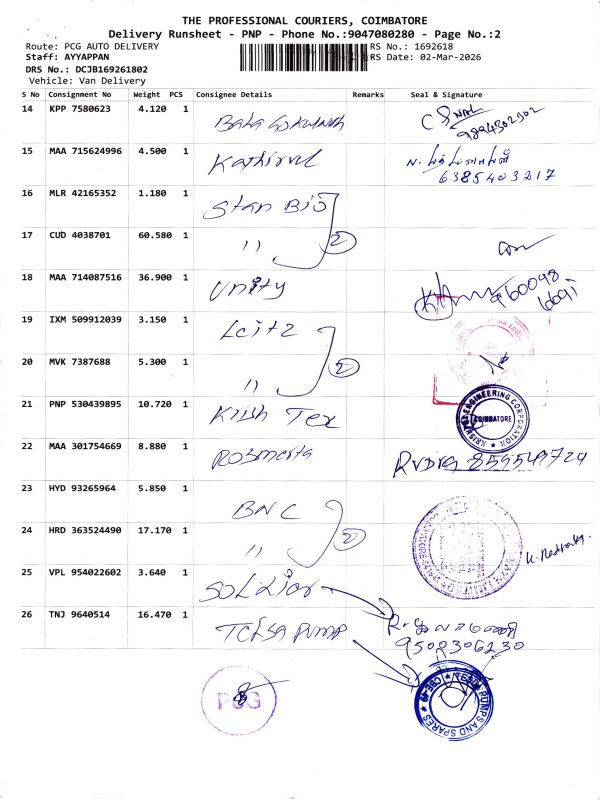 THE PROFESSIONAL COURIERS, COIMBATORE
Delivery Runsheet - PNP - Phone No.:9047080280 - Page No.:2
Route: PCG AUTO DELIVERY
RS No.: 1692618
Staff: AYYAPPAN
RS Date: 02-Mar-2026
DRS No.: DCJB169261802
Vehicle: Van Delivery
S No Consignment No Weight PCS Consignee Details Remarks Seal & Signature
14 KPP 7580623 4.120 1
9894302902
15 MAA 715624996 4.500 1 Kathirvel
6385403217
16 MLR 42165352 1.180 1 Stan Bio
17 CUD 4038701 60.580 1 11 2
18 MAA 714087516 36.900 1 Unity
19 IXM 509912039 3.150 1 Leitz
20 MVK 7387688 5.300 1 11 2
21 PNP 530439895 10.720 1 Krish Tex
COIMBATORE
22 MAA 301754669 8.880 1
23 HYD 93265964 5.850 1 BNC
24 HRD 363524490 17.170 1 11 2
25 VPL 954022602 3.640 1
26 TNJ 9640514 16.470 1 PUMP
9502306230
PCG
PUMPS AND SPARES